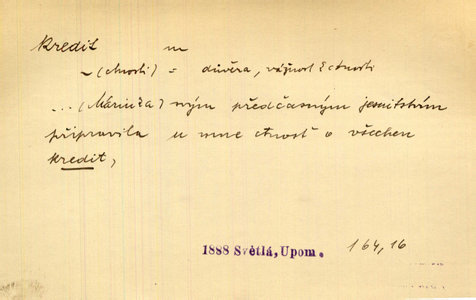 Kredit m
~ (ctnosti) = důvěra, vážnost k ctnosti
... (Máruška) svým předčasným jesuitstvím
připravila u mne ctnost o všechen
kredit,
1888 Světlá, Upom. 164,16